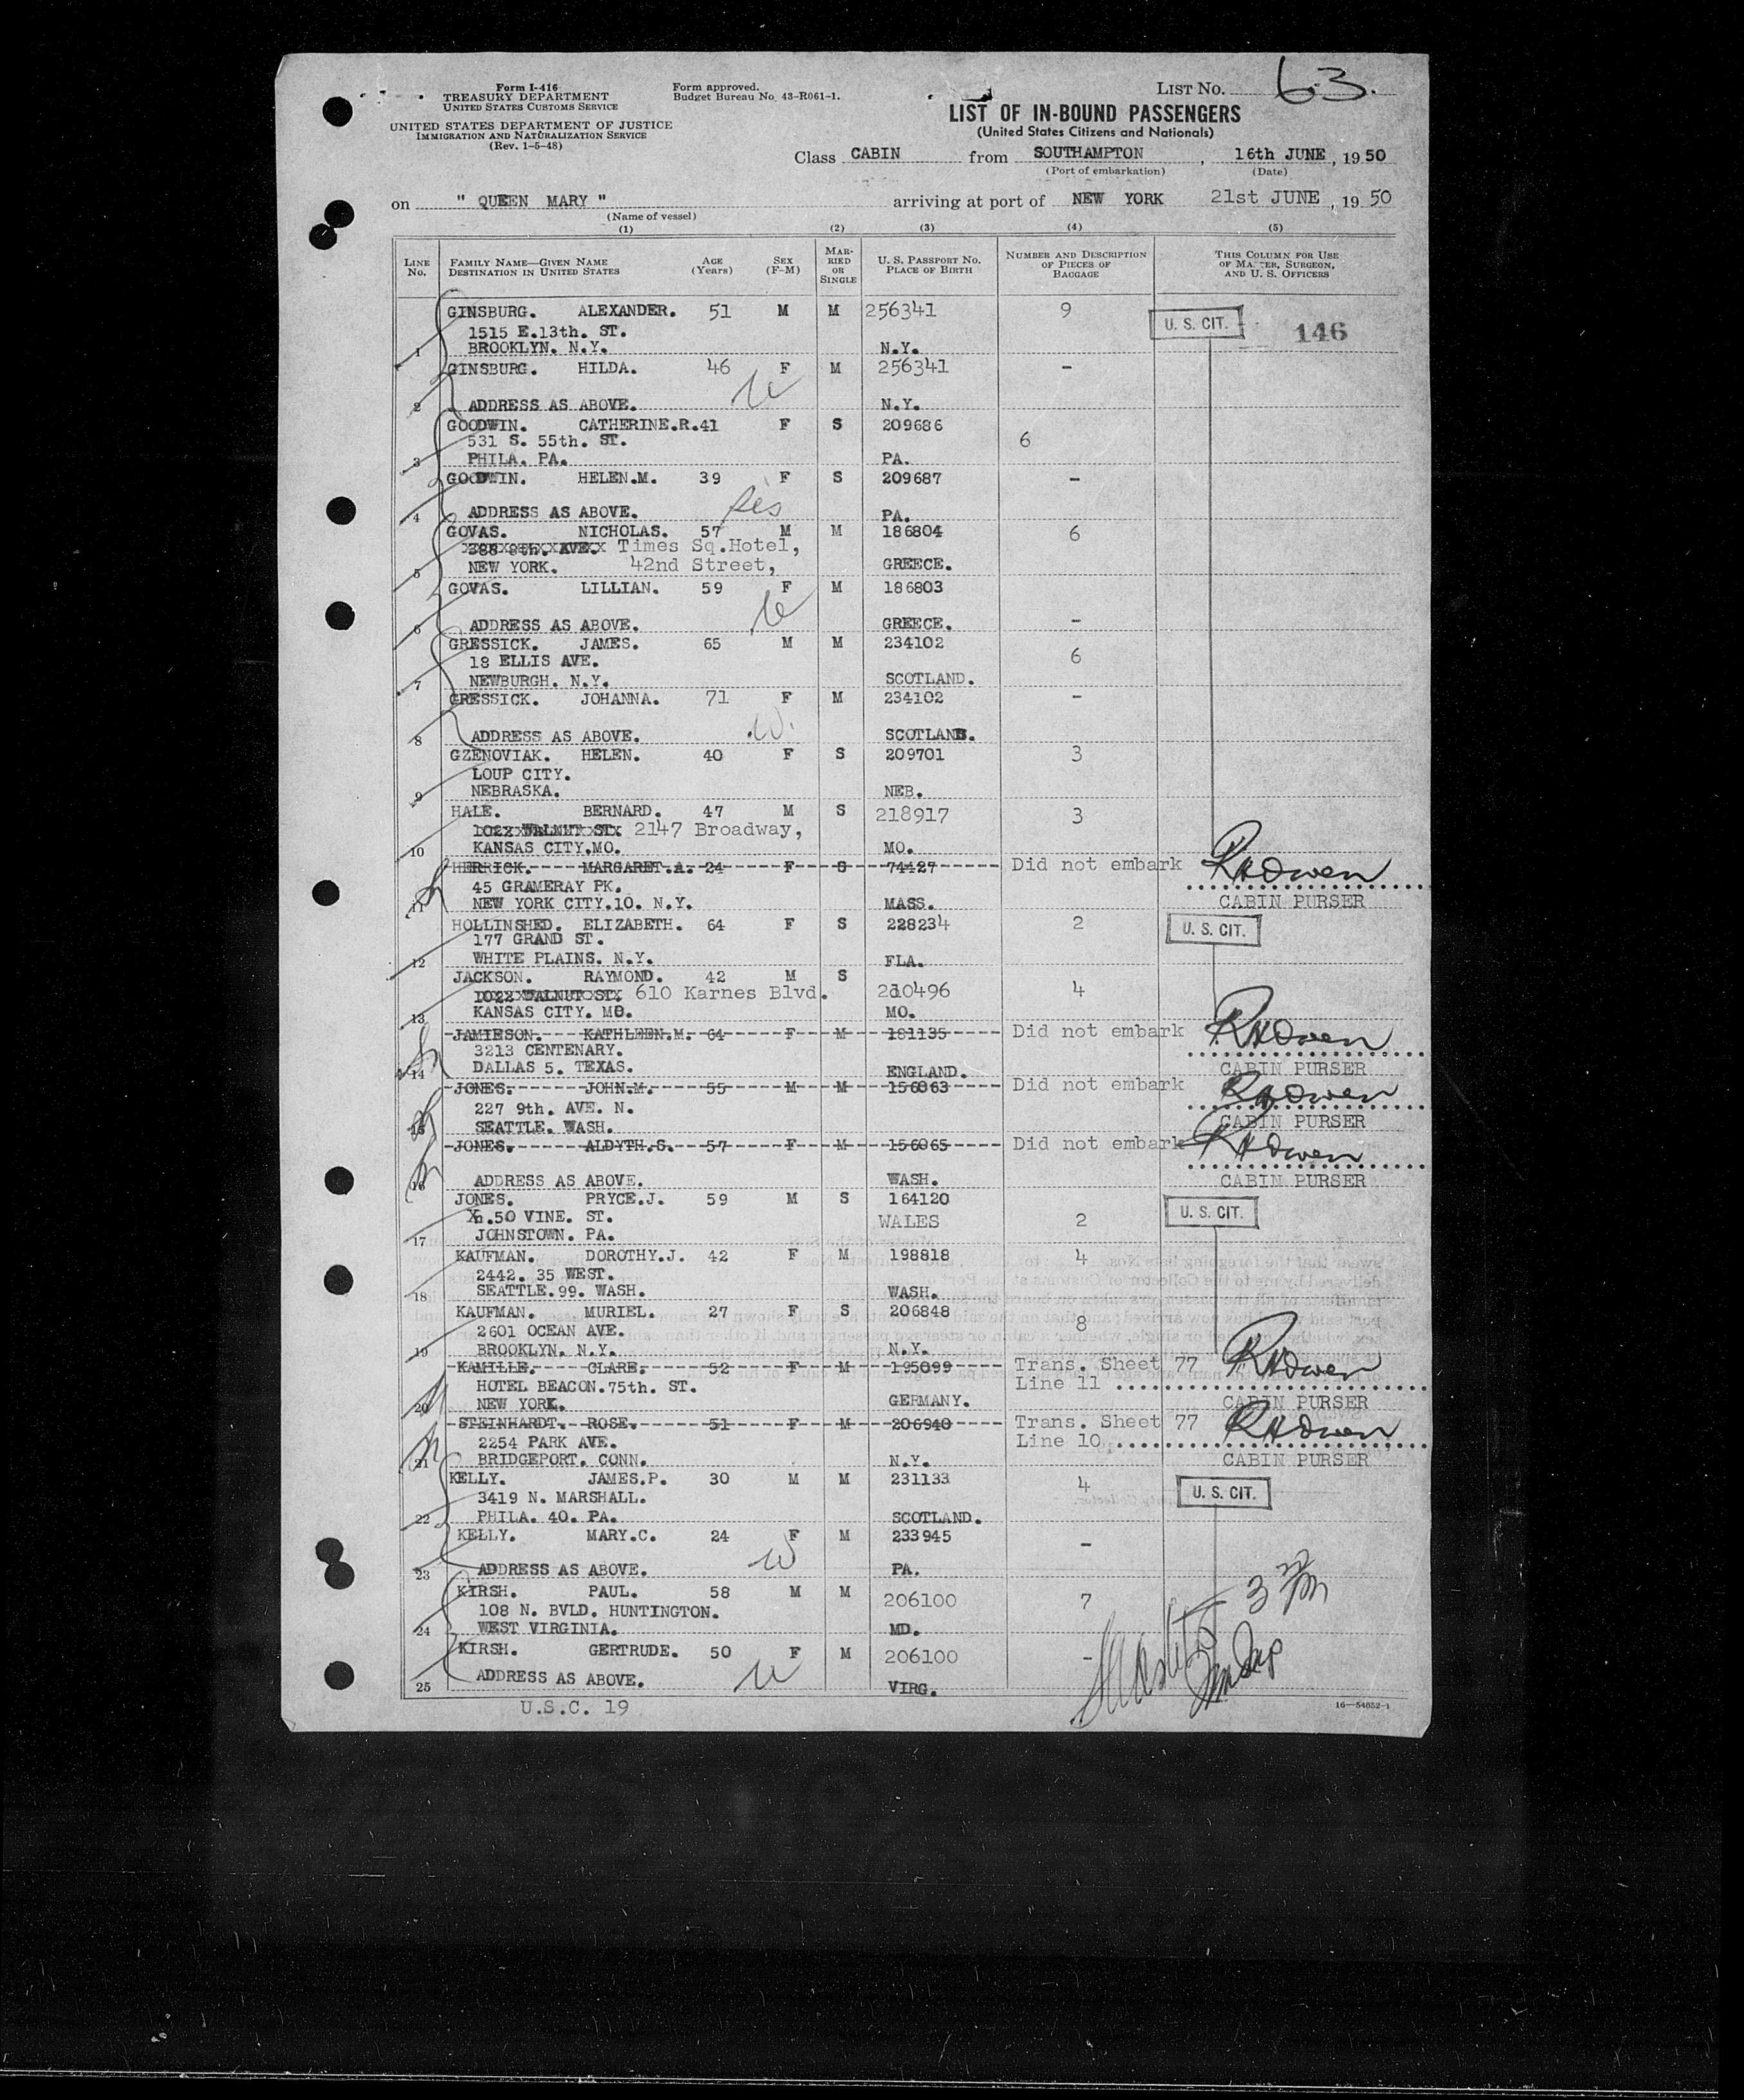 Form I-416
TREASURY DEPARTMENT
UNITED STATES CUSTOMS SERVICE
UNITED STATES DEPARTMENT OF JUSTICE
IMMIGRATION AND NATURALIZATION SERVICE
(Rev. 1-5-48)
Form approved.
Budget Bureau No. 43-R061-1.
LIST No. 63.
LIST OF IN-BOUND PASSENGERS
(United States Citizens and Nationals)
Class CABIN from SOUTHAMPTON, 16th JUNE, 1950
(Port of embarkation) (Date)
on " QUEEN MARY " arriving at port of NEW YORK 21st JUNE, 1950
(Name of vessel)
(1) (2) (3) (4) (5)
LINE No. FAMILY NAME—GIVEN NAME DESTINATION IN UNITED STATES AGE (Years) SEX (F-M) MARRIED OR SINGLE U. S. PASSPORT NO. PLACE OF BIRTH NUMBER AND DESCRIPTION OF PIECES OF BAGGAGE THIS COLUMN FOR USE OF MASTER, SURGEON, AND U. S. OFFICERS
GINSBURG. ALEXANDER. 51 M M 256341 9 U. S. CIT. 146
1515 E.13th. ST.
1 BROOKLYN. N.Y. N.Y.
GINSBURG. HILDA. 46 F M 256341 -
2 ADDRESS AS ABOVE. N.Y.
GOODWIN. CATHERINE.R. 41 F S 209686
531 S. 55th. ST. 6
3 PHILA. PA. PA.
GOODWIN. HELEN.M. 39 F S 209687 -
4 ADDRESS AS ABOVE. PA.
GOVAS. NICHOLAS. 57 M M 186804 6
388 8th. AVE. Times Sq.Hotel,
5 NEW YORK. 42nd Street, GREECE.
GOVAS. LILLIAN. 59 F M 186803
6 ADDRESS AS ABOVE. GREECE. -
GRESSICK. JAMES. 65 M M 234102
18 ELLIS AVE. 6
7 NEWBURGH. N.Y. SCOTLAND.
GRESSICK. JOHANNA. 71 F M 234102 -
8 ADDRESS AS ABOVE. SCOTLAND.
GZENOVIAK. HELEN. 40 F S 209701 3
LOUP CITY.
9 NEBRASKA. NEB.
HALE. BERNARD. 47 M S 218917 3
1022 WALNUT ST. 2147 Broadway,
10 KANSAS CITY.MO. MO.
HERRICK. MARGARET.A. 24 F S 74427 Did not embark RHOwen
45 GRAMERAY PK.
11 NEW YORK CITY.10. N.Y. MASS. CABIN PURSER
HOLLINSHED. ELIZABETH. 64 F S 228234 2 U. S. CIT.
177 GRAND ST.
12 WHITE PLAINS. N.Y. FLA.
JACKSON. RAYMOND. 42 M S
1022 WALNUT ST. 610 Karnes Blvd. 210496 4
13 KANSAS CITY. MO. MO.
JAMIESON. KATHLEEN.M. 64 F M 181135 Did not embark RHOwen
3213 CENTENARY.
14 DALLAS 5. TEXAS. ENGLAND. CABIN PURSER
JONES. JOHN.M. 55 M M 156063 Did not embark RHOwen
227 9th. AVE. N.
15 SEATTLE. WASH. CABIN PURSER
JONES. ALDYTH.S. 57 F M 156065 Did not embark RHOwen
16 ADDRESS AS ABOVE. WASH. CABIN PURSER
JONES. PRYCE.J. 59 M S 164120 U. S. CIT.
50 VINE. ST. WALES 2
17 JOHNSTOWN. PA.
KAUFMAN. DOROTHY.J. 42 F M 198818 4
2442. 35 WEST.
18 SEATTLE.99. WASH. WASH.
KAUFMAN. MURIEL. 27 F S 206848
2601 OCEAN AVE. 8
19 BROOKLYN. N.Y. N.Y.
KAMILLE. CLARE. 52 F M 195099 Trans. Sheet 77 RHOwen
HOTEL BEACON.75th. ST. Line 11
20 NEW YORK. GERMANY. CABIN PURSER
STEINHARDT. ROSE. 51 F M 206940 Trans. Sheet 77 RHOwen
2254 PARK AVE. Line 10
21 BRIDGEPORT. CONN. N.Y. CABIN PURSER
KELLY. JAMES.P. 30 M M 231133 4 U. S. CIT.
3419 N. MARSHALL.
22 PHILA. 40. PA. SCOTLAND.
KELLY. MARY.C. 24 F M 233945 -
23 ADDRESS AS ABOVE. PA.
KIRSH. PAUL. 58 M M 206100 7
108 N. BVLD. HUNTINGTON.
24 WEST VIRGINIA. MD.
KIRSH. GERTRUDE. 50 F M 206100 -
25 ADDRESS AS ABOVE. VIRG.
U.S.C. 19
16—54852-1